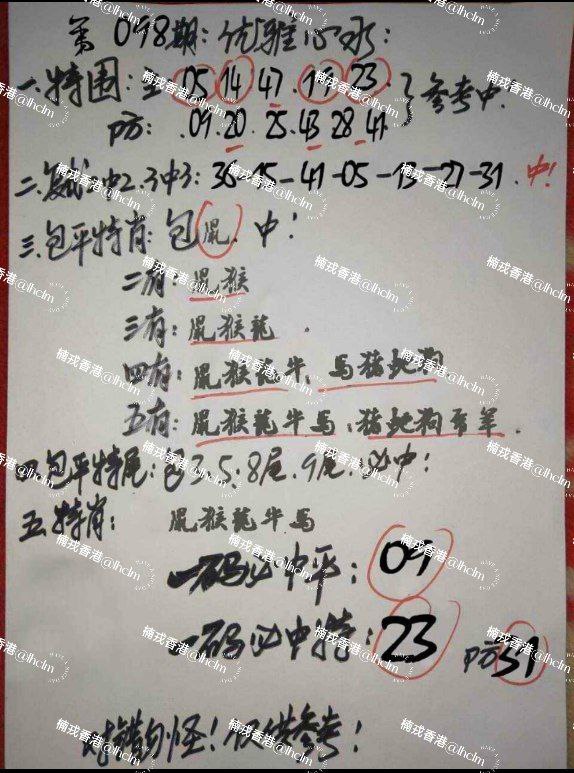 第098期:优雅心水:
一.特围:主05 14 47.19 23.
防:.09.20.25.43 28 41
参考中!
二.复式2中2.3中3:36-15-41-05-13-27-31.中!
三.包平特肖:包鼠.中!
二肖:鼠猴
三肖:鼠猴龍.
四肖:鼠猴龍牛.馬猪蛇狗
五肖:鼠猴龍牛馬.猪蛇狗 羊.
四包平特尾:包3.5.8尾.9尾.必中!
五.特肖:鼠猴龍牛馬
一码必中平:09
一码必中特:23 防31
错勿怪!仅供参考!
楠戎香港@lhclm